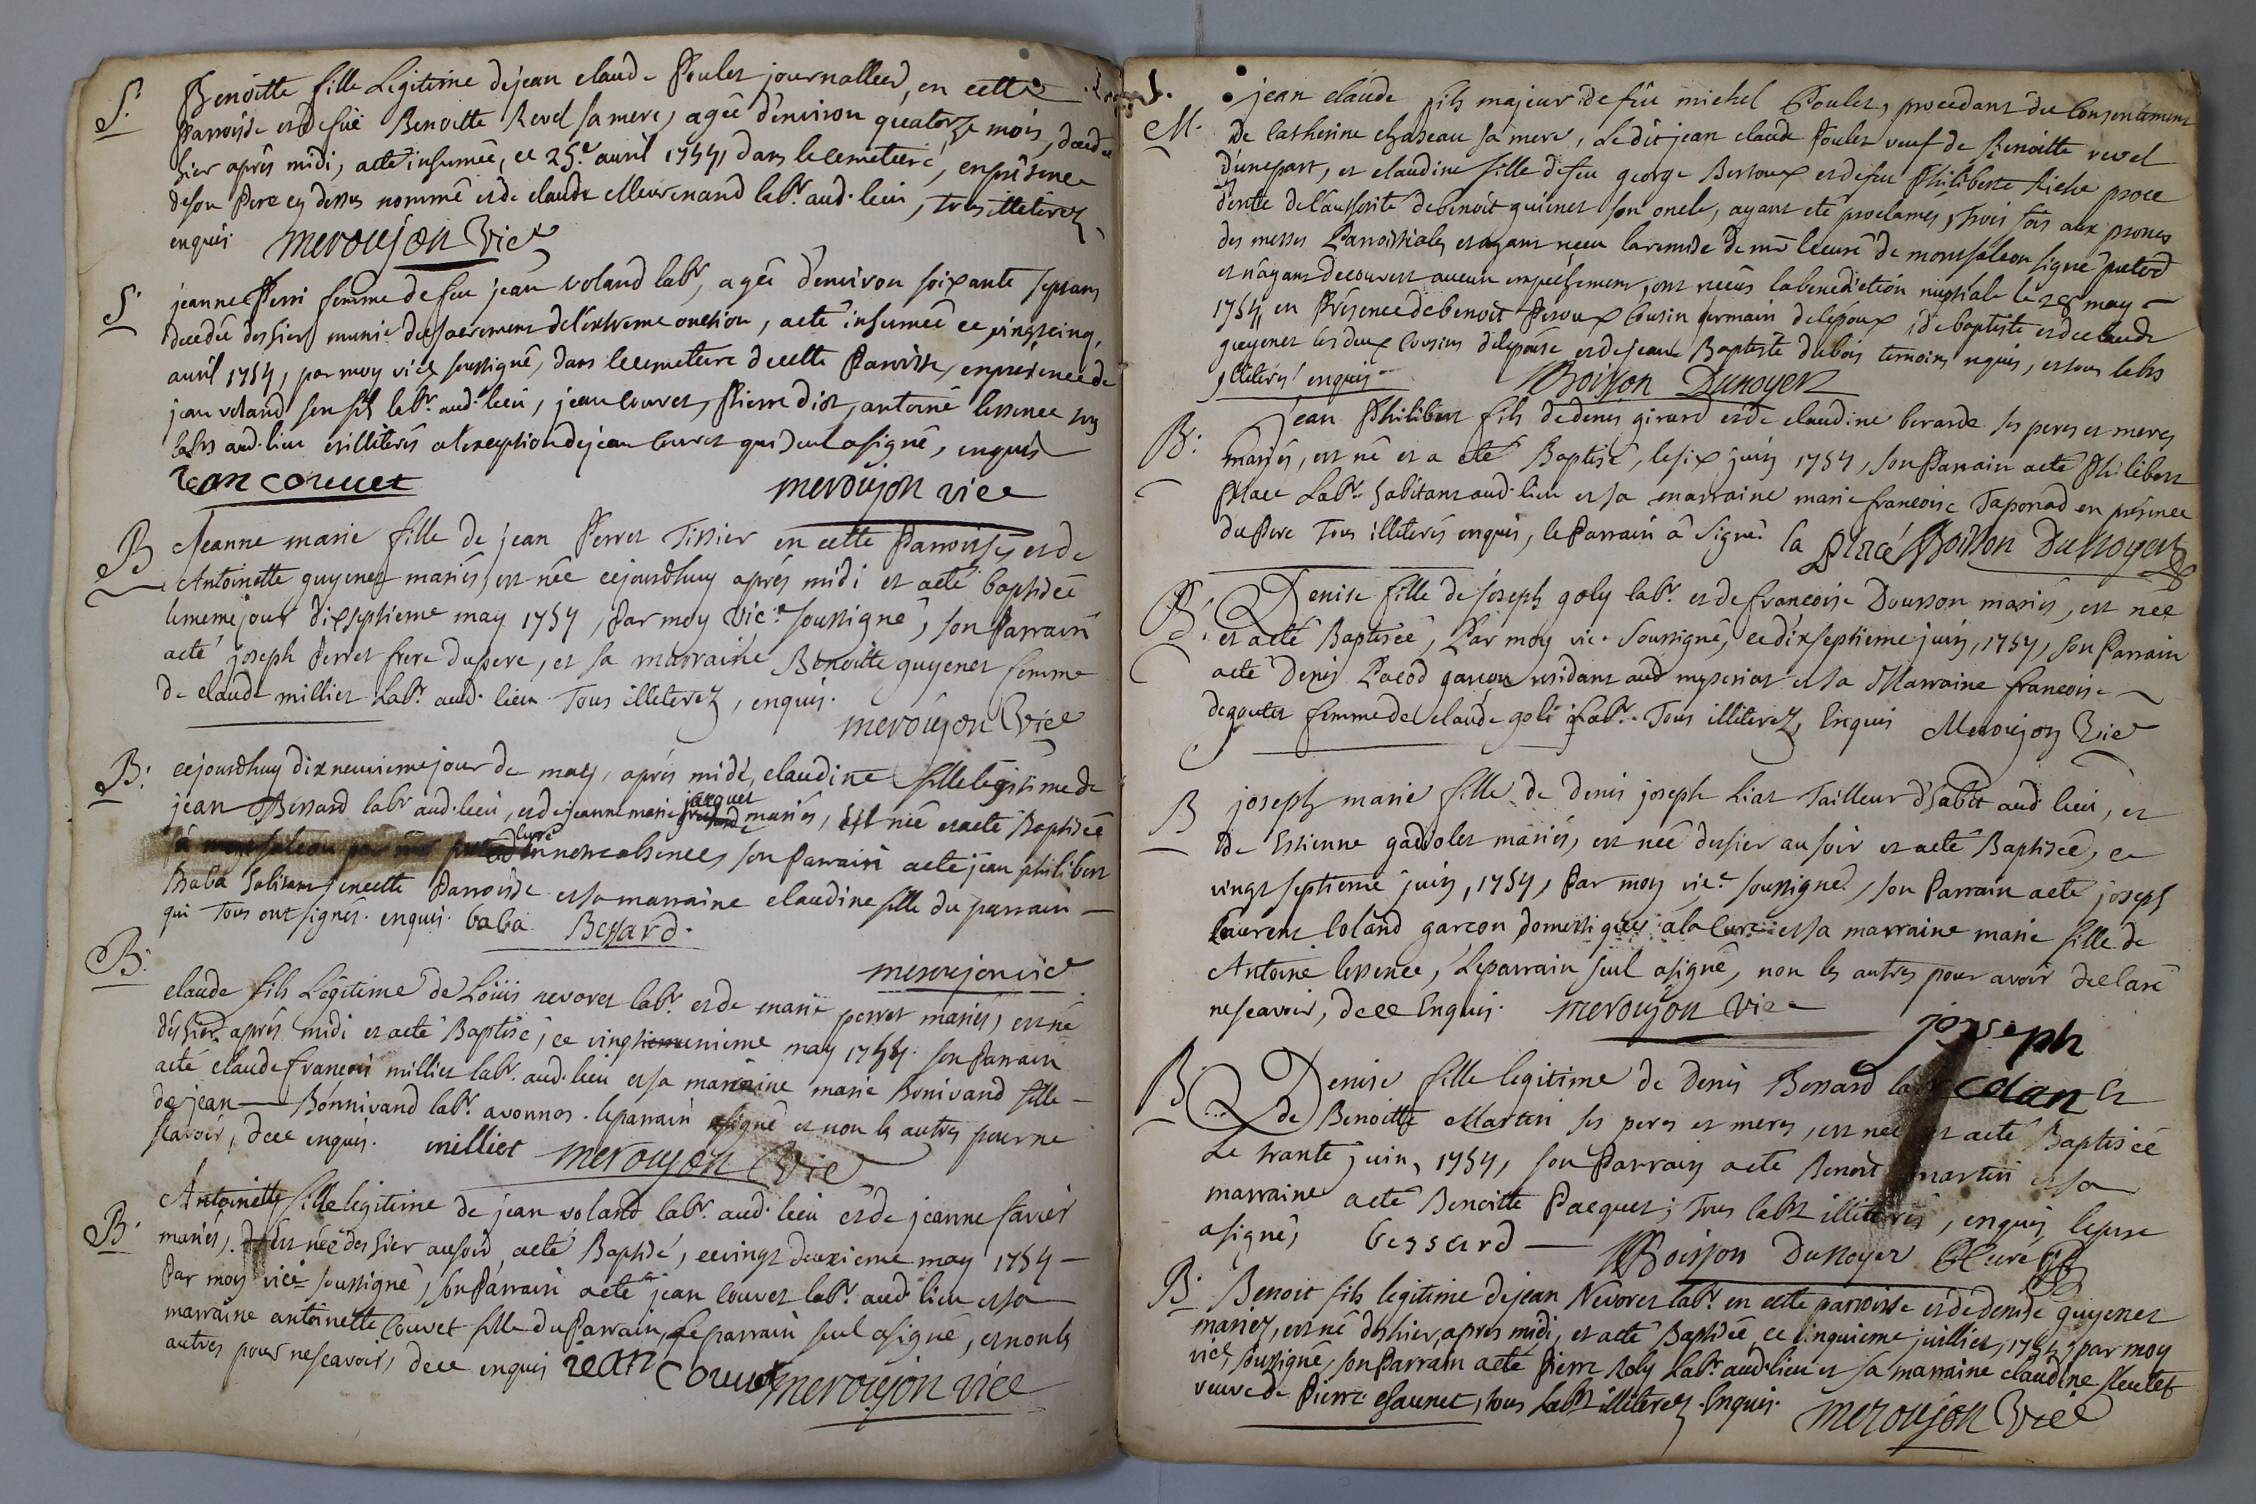 S. Benoitte fille Legitime de jean claude Poulet journallier, en cette
Parroisse et de füe Benoitte Revel sa mere, agée d'environ quatorze mois, decedée
hier aprés midi, a eté inhumée, ce 25e. avril 1754, dans le cemetiere, en présence
de son Pere cy dessus nommé et de claude Meurenand labr. aud. lieu, tous illeterez,
enquis. merousjon Vice
S. jeanne Perri femme de feu jean voland labr, agée d'environ soixante sept ans
decedée deshier munie du sacrement de l'extreme onction, a eté inhumée ce vingt cinq
avril 1754, par moy vice soussigné, dans le cemetiere de cette Parroisse, en presence de
jean voland son fils labr. aud. lieu, jean Couvet, Pierre diot, antoine lessence tous
labrs aud. lieu et illiterés a l'exception de jean Couvet qui seul a signé, enquis
jean couuet merousjon vice
B Jeanne marie fille de jean Perret Tissier en cette Parroisse, et de
Antoinette guyenet mariés, est née cejourdhuy aprés midi et a eté baptisée
le meme jour dixseptieme may 1754, Par moy Vice. soussigné, son Parrain
a eté joseph Perret frere du pere, et sa marraine Benoitte guyenet femme
de claude milliet Labr. aud. lieu. Tous illeterez, enquis.
merousjon Vice
B. cejourdhuy dixneuvieme jour de may, aprés midi, claudine fille legitime de
jean Bessard labr aud. lieu, et de jeanne marie jacquet mariés, est née et a eté Baptisée
en notre absence, son Parrain a eté jean philibert
Baba habitant en cette Parroisse et sa marraine claudine fille du parrain
qui Tous ont signés. enquis. baba Bessard.
merousjon vice
B. claude fils Legitime de Loüis nevoret labr. et de marie perret mariés, est né
deshier aprés midi et a eté Baptisé, ce vingt unieme may 1754. son Parrain
a eté claude françois milliet labr. aud. lieu et sa marraine marie Bonivand fille
de jean Bonnivand labr. a vonnos. le parrain a signé et non les autres pour ne
scavoir, de ce enquis. milliet merousjon Vice
B. Antoinette fille legitime de jean voland labr. aud. lieu et de jeanne favier
mariés, est née deshier au soir, a eté Baptisé, ce vingt deuxieme may 1754
Par moy vice soussigné, son Parrain a eté jean Couvet labr. aud. lieu et sa
marraine antoinette Couvet fille du Parrain, le parrain seul a signé, et non les
autres pour ne scavoir, de ce enquis jean Couuet merousjon vice
M. jean claude fils majeur de feu michel Poulet, procedant du Consentement
de Catherine chaseau sa mere, Le dit jean claude Poulet veuf de Benoitte revel
d'une part, et claudine fille de feu george Bertoux et de feu Philiberte Riche proce
dente de l'authorité de benoit guienet son oncle, ayant eté proclamés, trois fois aux prones
des messes Parroissiales et ayant receu la remise de mr le curé de montfaleon signé
et n'ayant decouvert aucun empeschement, ont receus la benediction nuptiale le 28 may
1754, en Présence de benoit Peroux Cousin germain de l'epoux, de baptiste et de claude
guyenet les deux Cousins d'epouse et de jean Baptiste dubois temoins requis, et tous labrs
illiterés enquis Boisson Dunoyer
B. Jean Philibert fils de denis girard et de claudine berarde ses peres et meres
mariés, est né et a eté Baptisé, le six juin 1754, son Parrain a eté Philibert
Place Labr. habitant aud. lieu et sa marraine marie francoise Taponad en présence
du Pere Tous illeterés enquis, le Parrain a signé la place Boisson Dunoyer
B. Denise fille de joseph goly labr. et de francoise Dousson mariés, est née
et a eté Baptisée, Par moy vic. Soussigné, ce dixseptieme juin, 1754, son Parrain
a eté Denis Pacod garçon residant aud myserior et sa Marraine francoise
degouter femme de claude goli labr. Tous illiterez, Enquis Merousjon Vice
B joseph marie fille de denis joseph Liat Tailleur d'habit aud. lieu, et
de Estienne gadiolet mariés, est née deshier au soir et a eté Baptisée, ce
vingt septieme juin, 1754, Par moy vice. soussigné, son Parrain a eté joseph
Laurent Coland garçon domestique a la Cure et sa marraine marie fille de
Antoine lessence, le parrain seul a signé, non les autres pour avoir declaré
ne scavoir, de ce Enquis. merousjon Vice
joseph
colan
B. Denise fille legitime de Denis Bessard labr Et
de Benoitte Martin ses peres et meres, est née et a eté Baptisée
Le trante juin, 1754, son Parrain a eté Benoit martin et sa
marraine a eté Benoitte Pacquet; Tous labrs illiterés, enquis, le pere
a signé, bessard Boisson Dunoyer Curé
B. Benoit fils legitime de jean Nevoret labr. en cette parroisse et de denise guyenet
mariez, est né deshier, apres midi, et a eté Baptisée, ce Cinquieme juilliet, 1754, par moy
vice, soussigné, son Parrain a eté Pierre Roly Labr. aud. lieu et sa marraine claudine
veuve de Pierre chaunet, tous labrs illiterez. Enquis. merousjon Vice